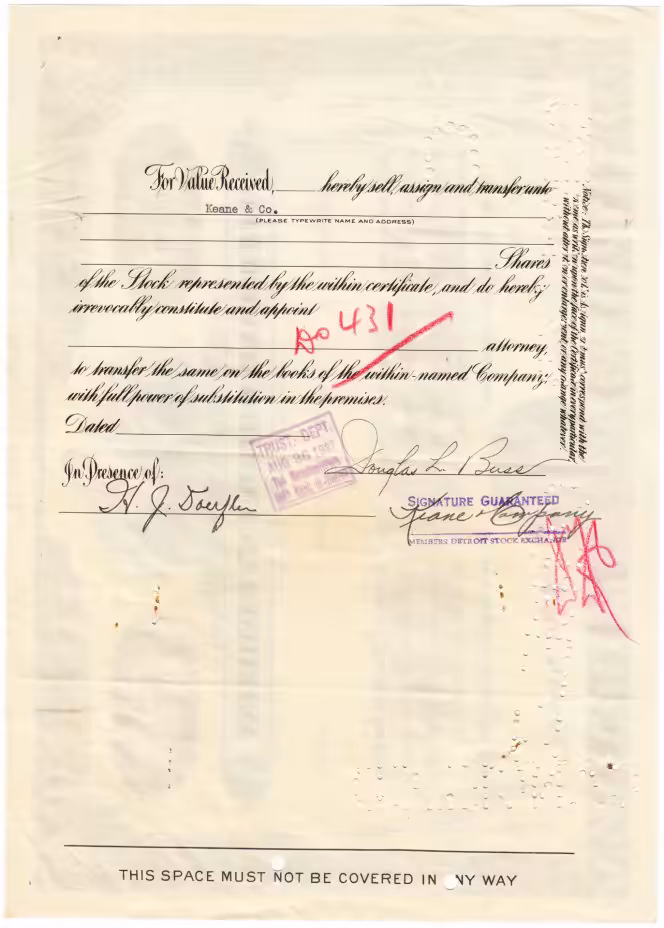 For Value Received, hereby sell, assign and transfer unto
Keane & Co.
(PLEASE TYPEWRITE NAME AND ADDRESS)
Shares
of the Stock represented by the within certificate, and do hereby
irrevocably constitute and appoint
Do 431
attorney,
to transfer the same on the books of the within-named Company,
with full power of substitution in the premises.
Dated
TRUST DEPT.
AUG 26
In Presence of:
Douglas L. Buss
H. J. Doerfler
SIGNATURE GUARANTEED
Keane & Company
MEMBERS DETROIT STOCK EXCHANGE
Notice: The signature must correspond with the
name as written upon the face of the Certificate in every particular,
without alteration or enlargement or any change whatever.
THIS SPACE MUST NOT BE COVERED IN NY WAY